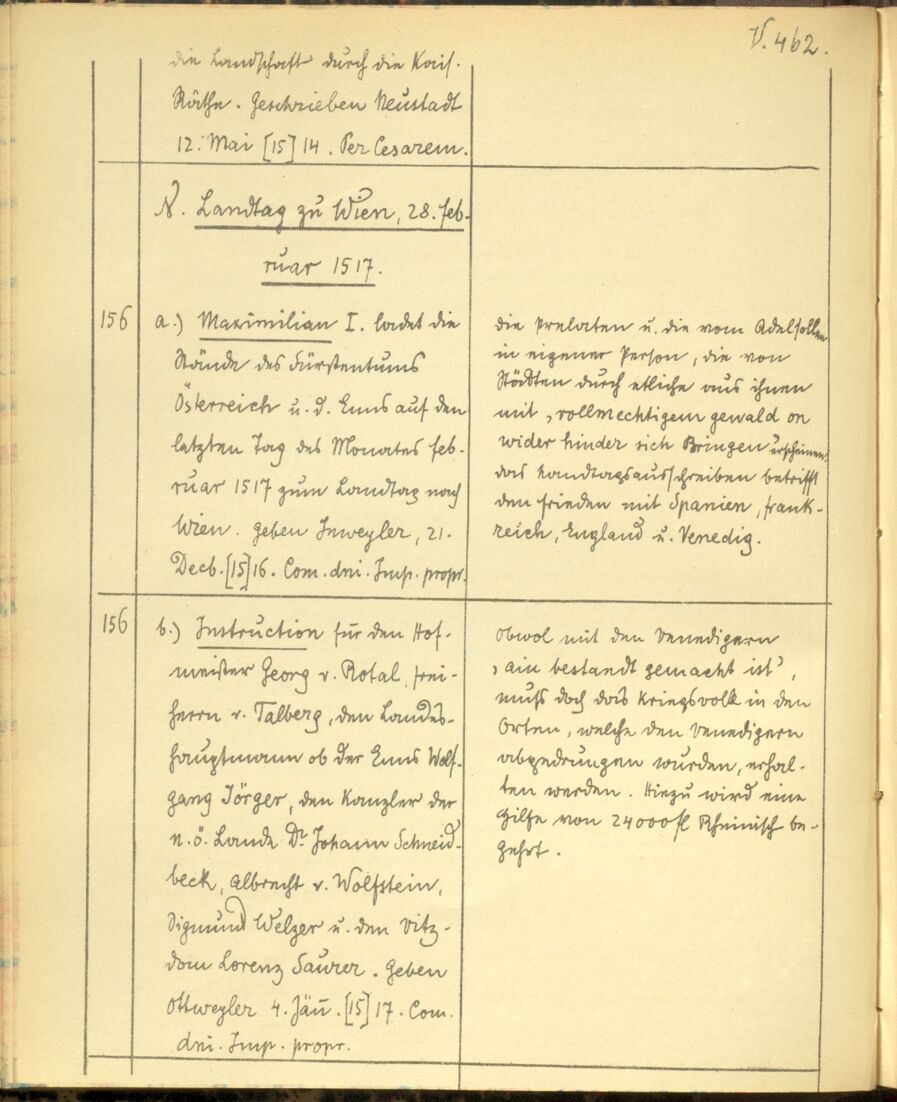 V. 462.
die Landschaft durch die Kais.
Räthe. Geschrieben Neustadt
12. Mai [15]14. Per Cesarem.
N. Landtag zu Wien, 28. Feb-
ruar 1517.
156
a.) Maximilian I. ladet die
Stände des Fürstentums
Österreich u. d. Enns auf den
letzten Tag des Monates Feb-
ruar 1517 zum Landtag nach
Wien. Geben Inweyler, 21.
Decb. [15]16. Com. dni. Imp. propr.
die Prelaten u. die vom Adel sollen
in eigener Person, die von
Städten durch etliche aus ihnen
mit ‚vollmechtigem gewald on
wider hinder sich Bringen' erscheinen.
das Landtagsausschreiben betrifft
den Frieden mit Spanien, Frank-
reich, England u. Venedig.
156
b.) Instruction für den Hof-
meister Georg v. Rotal, Frei-
herrn v. Talberg, den Landes-
hauptmann ob der Enns Wolf-
gang Jörger, den Kanzler der
n. ö. Lande Dr. Johann Schneid-
beck, Albrecht v. Wolfstein,
Sigmund Welzer u. den Vitz-
dom Lorenz Saurer. Geben
Ottweyler 4. Jän. [15]17. Com.
dni. Imp. propr.
Obwol mit den Venedigern
‚ain bestandt gemacht ist',
muß doch das Kriegsvolk in den
Orten, welche den Venedigern
abgedrungen wurden, erhal-
ten werden. Hiezu wird eine
Hilfe von 24000 fl Rheinisch be-
gehrt.